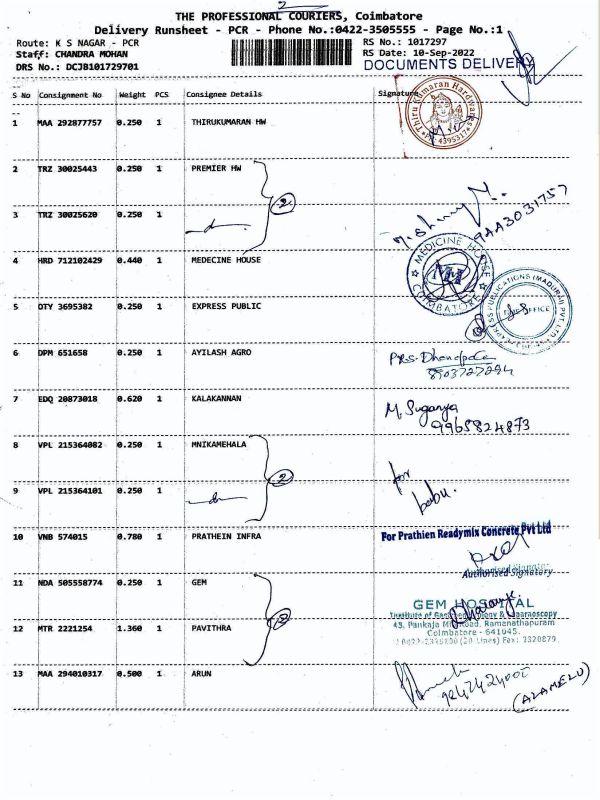 2
THE PROFESSIONAL COURIERS, Coimbatore
Delivery Runsheet - PCR - Phone No.:0422-3505555 - Page No.:1
Route: K S NAGAR - PCR
RS No.: 1017297
Staff: CHANDRA MOHAN
RS Date: 10-Sep-2022
DRS No.: DCJB101729701
DOCUMENTS DELIVERY
S No Consignment No Weight PCS Consignee Details Signature
1 MAA 292877757 0.250 1 THIRUKUMARAN HW
Thiru Kumaran Hardwares
Ph: 4395317
2 TRZ 30025443 0.250 1 PREMIER HW
2
3 TRZ 30025620 0.250 1 -do-
4 HRD 712102429 0.440 1 MEDECINE HOUSE
MEDICINE HOUSE
MM
COIMBATORE
5 OTY 3695382 0.250 1 EXPRESS PUBLIC
EXPRESS PUBLICATIONS (MADURAI) PVT. LTD.
OFFICE
6 DPM 651658 0.250 1 AYILASH AGRO
7 EDQ 20873018 0.620 1 KALAKANNAN
M. Suganya
9965824873
8 VPL 215364082 0.250 1 MNIKAMEHALA
2
for
babu.
9 VPL 215364101 0.250 1 -do-
10 VNB 574015 0.780 1 PRATHEIN INFRA
For Prathien Readymix Concrete Pvt Ltd
Authorised Signatory
11 NDA 505558774 0.250 1 GEM
2
GEM HOSPITAL
45, Pankaja Mill Road, Ramanathapuram
Coimbatore - 641045.
12 MTR 2221254 1.360 1 PAVITHRA
13 MAA 294010317 0.500 1 ARUN
(ALAMELU)